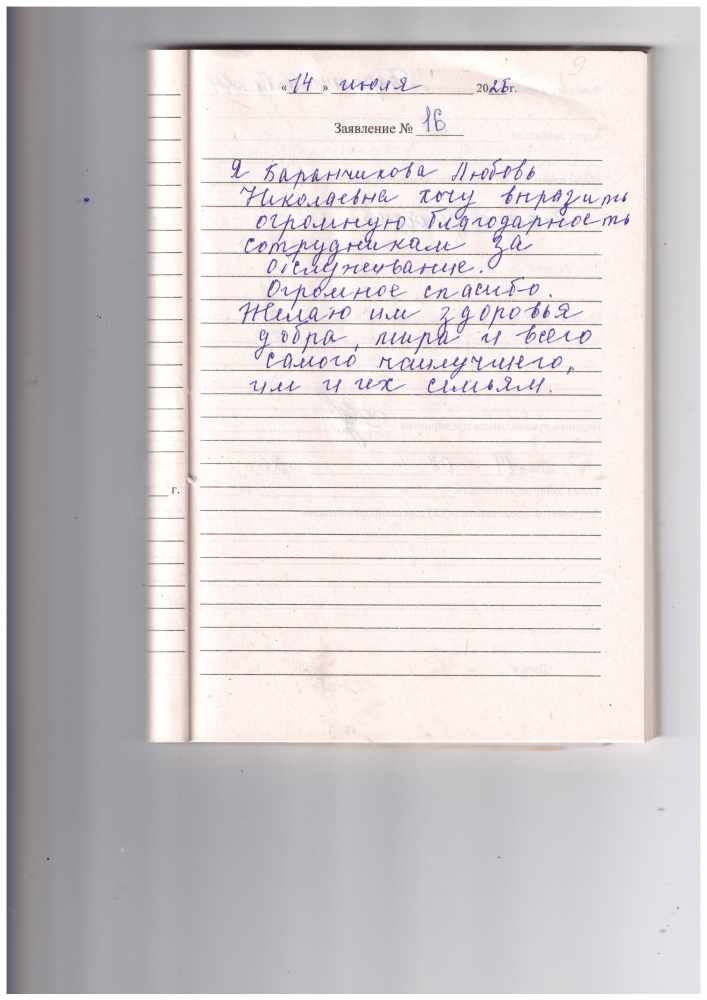 9
«14» июля 2025г.
Заявление № 16
Я Баранчикова Любовь
Николаевна хочу выразить
огромную благодарность
сотрудникам за
обслуживание.
Огромное спасибо.
Желаю им здоровья
добра, мира и всего
самого наилучшего,
им и их семьям.
г.